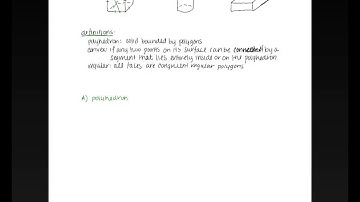 definitions:
polyhedron: solid bounded by polygons
convex: if any two points on its surface can be connected by a
segment that lies entirely inside or on the polyhedron
regular: all faces are congruent regular polygons
A) polyhedron